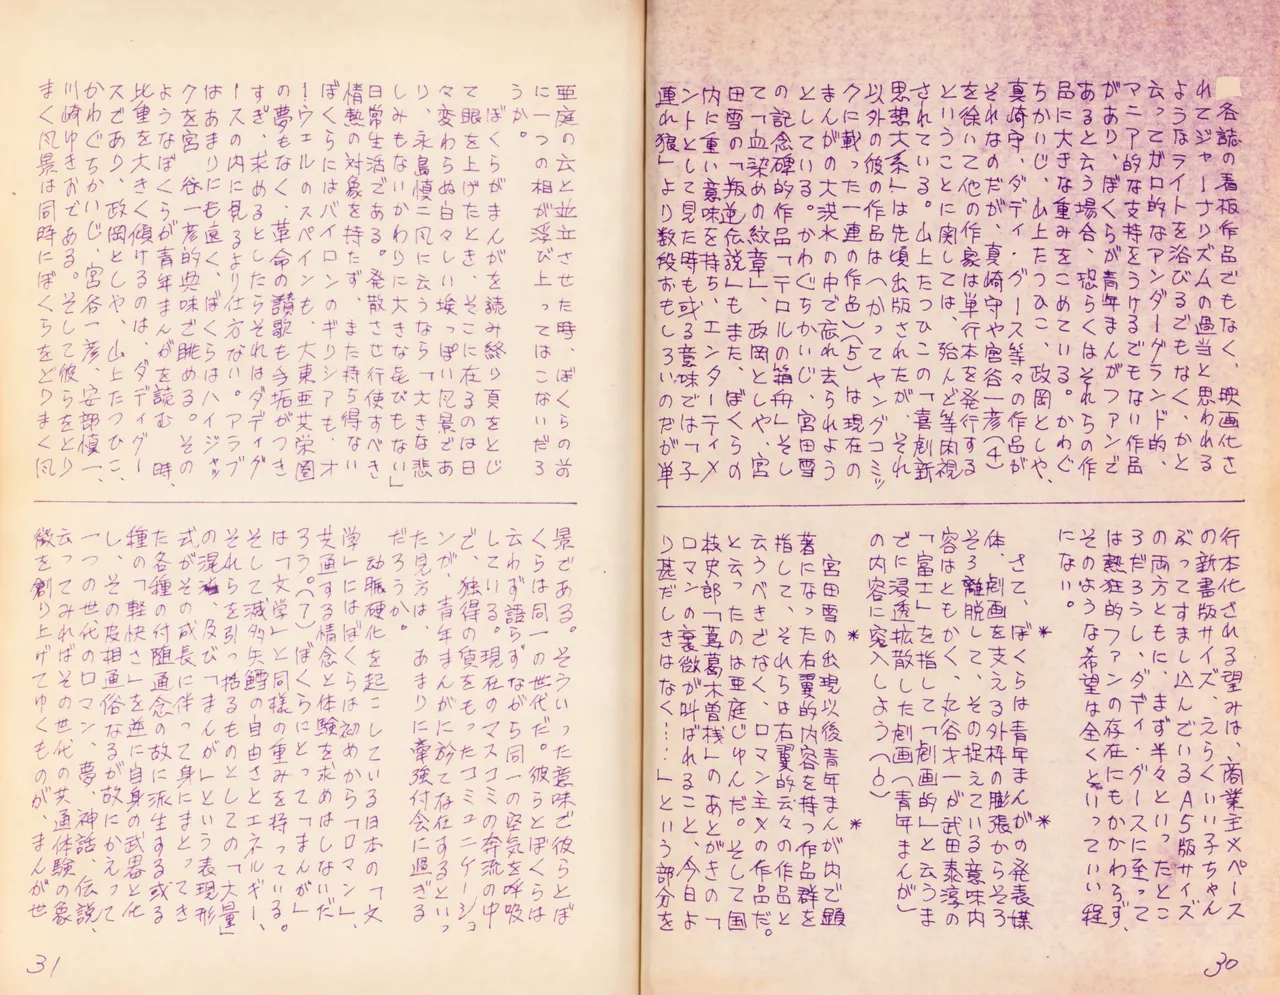 各誌の看板作品でもなく、映画化さ
れてジャーナリズムの過当と思われる
ようなライトを浴びるでもなく、かと
云ってガロ的なアンダーグランド的、
マニア的な支持をうけるでもない作品
があり、ぼくらが青年まんがファンで
あると云う場合、恐らくはそれらの作
品に大きな重みをこめている。かわぐ
ちかいじ、山上たつひこ、政岡としや、
真崎守、ダディ・グース等々の作品が
それなのだが、真崎守や宮谷一彦(4)
を徐いて他の作家は単行本を発行する
ということに関しては、殆んど等閑視
されている。山上たつひこの「喜劇新
思想大系」は先頃出版されたが、それ
以外の彼の作品はへかってヤングコミッ
クに載った一連の作品)(5)は現在の
まんがの大洪水の中で忘れ去られよう
としている。かわぐちかいじ、宮田雪
の記念碑的作品「テロルの箱舟」そし
て「血染めの紋章」、政岡としや、宮
田雪の「叛逆伝説」もまた、ぼくらの
内に重い意味を持ち、エンターティメ
ントとして見た時も或る意味では「子
連れ狼」より数段おもしろいのだが単
行本化される望みは、商業主メペース
の新書版サイズ、えらくいい子ちゃん
ぶってすまし込んでいるA5版サイズ
の両方ともに、まず半々といったとこ
ろだろうし、ダディ・グースに至って
は熱狂的ファンの存在にもかかわらず、
そのような希望は全くといっていい程
にない。
＊　＊
さて、ぼくらは青年まんがの発表媒
体、劇画を支える外枠の膨張からそろ
そろ離脱して、その捉えている意味内
容はともかく、丸谷才一が武田泰淳の
「富士」を指して「劇画的」と云うま
でに浸透拡散した劇画(青年まんが)
の内容に容入しよう(6)
＊　＊
宮田雪の出現以後青年まんが内で顕
著になった右翼的内容を持つ作品群を
指して、それらは右翼的云々の作品と
云うべきでなく、ロマン主メの作品だ。
と云ったのは亜庭じゅんだ。そして国
枝史郎「蔦葛木曽桟」のあとがきの「
ロマンの衰微が叫ばれること、今日よ
り甚だしきはなく……」という部分を
亜庭の云と並立させた時、ぼくらの前
に一つの相が浮び上ってはこないだろ
うか。
ぼくらがまんがを読み終り頁をとじ
て眼を上げたとき、そこに在るのは日
々変わらぬ白々しい埃っぽい風景であ
り、永島慎二風に云うなら「大きな悲
しみもないかわりに大きな㐂びもない」
日常生活である。発散させ行使すべき
情熱の対象を持たず、また持ち得ない
ぼくらにはバイロンのギリシアも、オ
ーウェルのスペインも、大東亜共栄圏
の夢もなく、革命の讃歌も手垢がつき
すぎ、求めるとしたらそれはダディグ
ースの内に見るより仕方ない。アラブ
はあまりにも遠く、ぼくらはハイジャッ
クを宮　谷一彦的興味で眺める。その
ようなぼくらが青年まんがを読む　時、
比重を大きく傾けるのは、ダディグー
スであり、政岡としや、山上たつひこ、
かわぐちかいじ、宮谷一彦、安部慎一、
川崎ゆきおである。そして彼らをとり
まく風景は同時にぼくらをとりまく風
景である。そういった意味で彼らとぼ
くらは同一の世代だ。彼らとぼくらは
云わず語らずながら同一の空気を呼吸
している。現在のマスコミの奔流の中
で、独得の値をもったコミュニケーショ
ンが、青年まんがに於て存在するといっ
た見方は、あまりに牽強付会に過ぎる
だろうか。
動脈硬化を起こしている日本の「文
学」にはぼくらは初めから「ロマン」、
共通する情念と体験を求めはしないだ
ろう。(7)ぼくらにとって「まんが」
は「文学」と同様の重みを持っている。
そして滅多矢鱈の自由さとエネルギー、
それらを引っ括るものとしての「大量」
の混淆、及び「まんが」という表現形
式がその成長に伴って身にまとってき
た各種の付随通念の故に派生する或る
種の「軽快さ」を逆に自身の武器と化
し、その皮相通俗なるが故にかえって
一つの世代のロマン、夢、神話、伝説、
云ってみればその世代の共通体験の象
徴を創り上げてゆくものが、まんが世
30
31